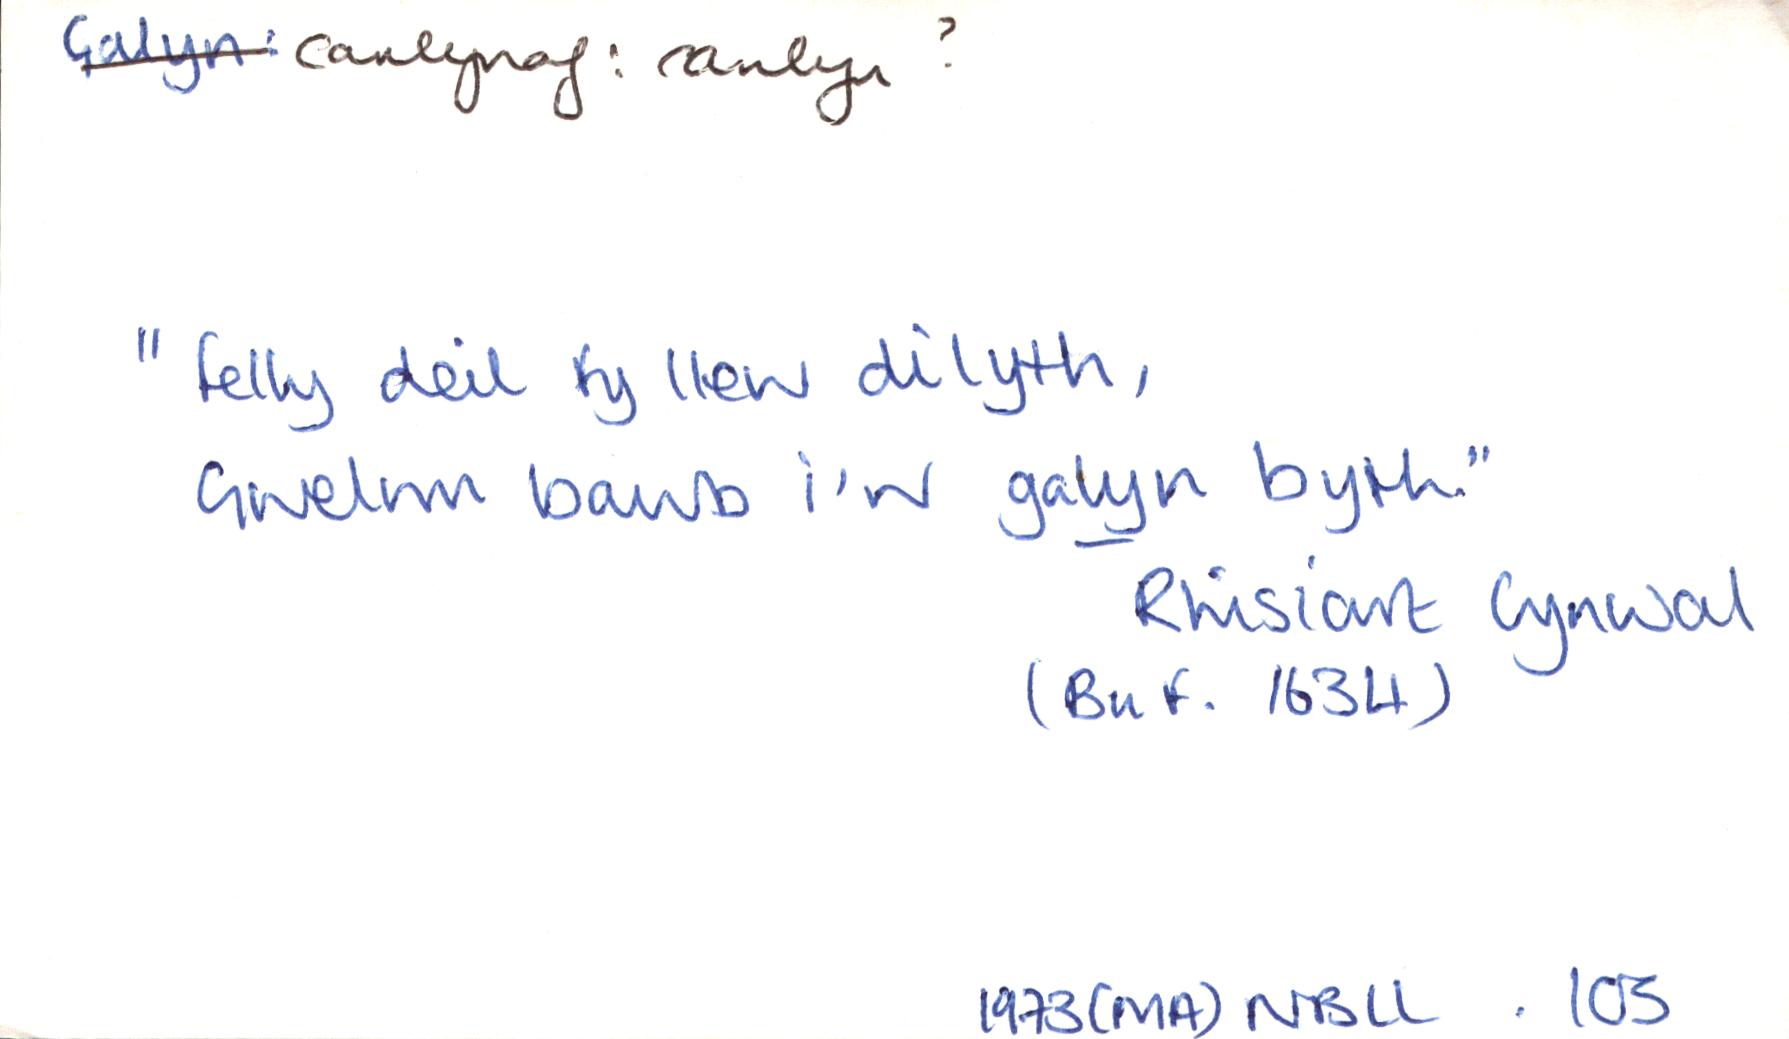 Galyn: canlynaf: canlyn ?
"felly deil ty llew dilyth,
Gwelwn bawb i'w galyn byth."
Rhisiart Cynwal
(Bu f. 1634)
1973 (MA) NBLL . 103